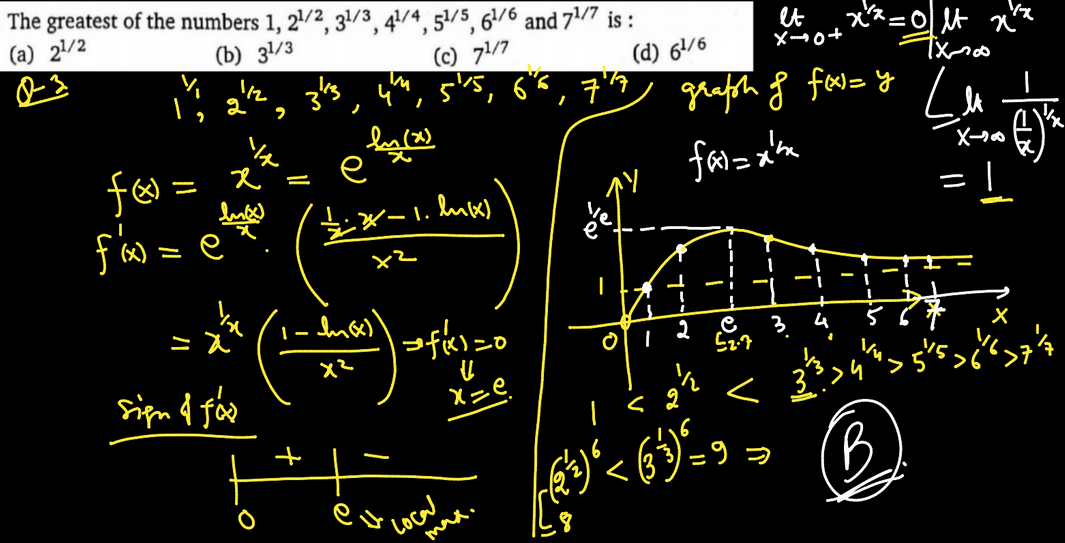 The greatest of the numbers 1, 2^{1/2}, 3^{1/3}, 4^{1/4}, 5^{1/5}, 6^{1/6} and 7^{1/7} is :
(a) 2^{1/2} (b) 3^{1/3} (c) 7^{1/7} (d) 6^{1/6}
Q-3
1^{1/1}, 2^{1/2}, 3^{1/3}, 4^{1/4}, 5^{1/5}, 6^{1/6}, 7^{1/7}
f(x) = x^{1/x} = e^{ln(x)/x}
f'(x) = e^{ln(x)/x} · ( (1/x · x − 1 · ln(x)) / x² )
= x^{1/x} ( (1 − ln(x)) / x² ) ⇒ f'(x) = 0
⇓
x = e
Sign of f'(x)
+ −
0 e ⇒ local max.
lt x→0+ x^{1/x} = 0
lt x→∞ x^{1/x}
lt x→∞ 1 / (1/x)^{1/x}
= 1
graph of f(x) = y
f(x) = x^{1/x}
Y
e^{1/e}
1
0 1 2 e 3 4 5 6 7 X
≃2.7
1 < 2^{1/2} < 3^{1/3} > 4^{1/4} > 5^{1/5} > 6^{1/6} > 7^{1/7}
(2^{1/2})^6 < (3^{1/3})^6 = 9 ⇒
= 8
B